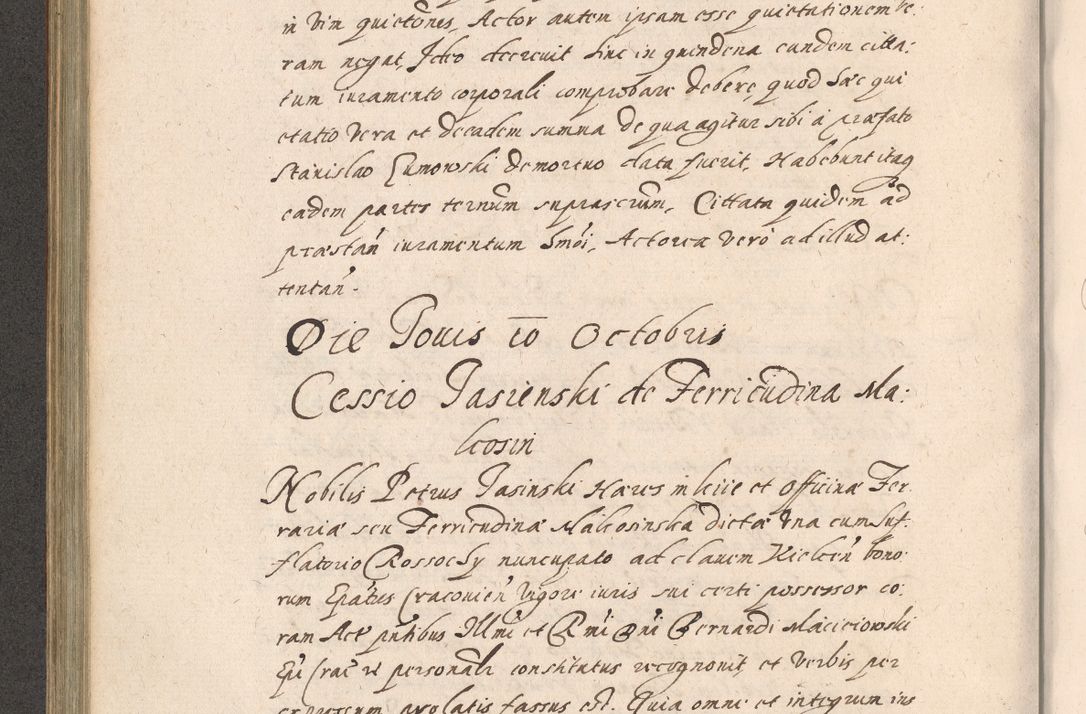 in vim quietones, Actor autem ipsam esse quietationem ve:
ram negat, Ideo decrevit hinc in quindena eundem citta:
tum iuramento corporali comprobare debere, quod hæc qui
etatio vera et de eadem summa de qua agitur sibi à præfato
Stanislao Lumowski demortuo data fuerit, Habebunt itaq
eadem partes ternum suprascrum, Cittata quidem ad
præstan iuramentum hmoi, Actorea vero ad illud at:
tentan.
Die Jovis 10 Octobris
Cessio Jasienski de Ferricudina Ma:
lcosin
Nobilis Petrus Jasinski Hæres in et Officinæ Fer:
rariæ seu Ferricudinæ Malcosinska dictæ una cum suf:
flatorio Rossochy nuncupato ad clavem Kielcen bono:
rum Epatus Cracovien vigore iuris sui certi possessor co:
ram Act pntibus Illmi et Rmi Dni Bernardi Macieiowski
Epi Crac personali constitutus recognovit, et verbis per
expressum prolatis fassus est. Quia omne et integrum ius